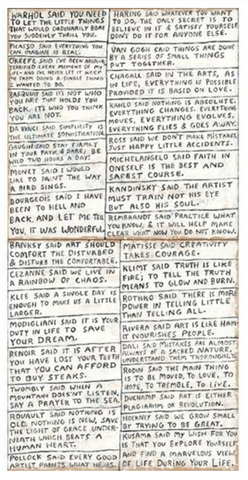 WARHOL SAID YOU NEED
TO LET THE LITTLE THINGS
THAT WOULD ORDINARILY BORE
YOU SUDDENLY THRILL YOU.
PICASSO SAID EVERYTHING YOU
CAN IMAGINE IS REAL.
OKEEFE SAID I'VE BEEN ABSOLUTELY
TERRIFIED EVERY MOMENT OF MY
LIFE AND I'VE NEVER LET IT KEEP
ME FROM DOING A SINGLE THING
I WANTED TO DO.
BASQUIAT SAID IT'S NOT WHO
YOU ARE THAT HOLDS YOU
BACK, ITS WHO YOU THINK
YOU ARE NOT.
DA VINCI SAID SIMPLICITY IS
THE ULTIMATE SOPHISTICATION.
VAUGHN SAID STAY FIRMLY
IN YOUR PATH & DARE; BE
WILD TWO HOURS A DAY!
MONET SAID I WOULD
LIKE TO PAINT THE WAY
A BIRD SINGS.
BOURGEOIS SAID I HAVE
BEEN TO HELL AND
BACK, AND LET ME TELL
YOU, IT WAS WONDERFUL.
HARING SAID WHATEVER YOU WANT
TO DO, THE ONLY SECRET IS TO
BELIEVE IN IT & SATISFY YOURSELF.
DON'T DO IT FOR ANYONE ELSE.
VAN GOGH SAID THINGS ARE DONE
BY A SERIES OF SMALL THINGS
PUT TOGETHER.
CHAGALL SAID IN THE ARTS, AS
IN LIFE, EVERYTHING IS POSSIBLE
PROVIDED IT IS BASED ON LOVE.
KAHLO SAID NOTHING IS ABSOLUTE.
EVERYTHING CHANGES, EVERYTHING
MOVES, EVERYTHING EVOLVES,
EVERYTHING FLIES & GOES AWAY.
ROSS SAID WE DON'T MAKE MISTAKES
JUST HAPPY LITTLE ACCIDENTS.
MICHELANGELO SAID FAITH IN
ONESELF IS THE BEST AND
SAFEST COURSE.
KANDINSKY SAID THE ARTIST
MUST TRAIN NOT HIS EYE
BUT ALSO HIS SOUL.
REMBRANDT SAID PRACTICE WHAT
YOU KNOW, & IT WILL HELP MAKE
CLEAR WHAT NOW YOU DO NOT KNOW.
BANKSY SAID ART SHOULD
COMFORT THE DISTURBED
& DISTURB THE COMFORTABLE.
CEZANNE SAID WE LIVE IN
A RAINBOW OF CHAOS.
KLEE SAID A SINGLE DAY IS
ENOUGH TO MAKE US A LITTLE
LARGER.
MODIGLIANI SAID IT IS YOUR
DUTY IN LIFE TO SAVE
YOUR DREAM.
RENOIR SAID IT IS AFTER
YOU HAVE LOST YOUR TEETH
THAT YOU CAN AFFORD
TO BUY STEAKS.
TWOMBLY SAID WHEN A
MOUNTAIN DOESN'T LISTEN,
SAY A PRAYER TO THE SEA.
ROUAULT SAID NOTHING IS
OLD, NOTHING IS NEW, SAVE
THE LIGHT OF GRACE UNDER-
NEATH WHICH BEATS A
HUMAN HEART.
POLLOCK SAID EVERY GOOD
ARTIST PAINTS WHAT HE IS.
MATISSE SAID CREATIVITY
TAKES COURAGE.
KLIMT SAID TRUTH IS LIKE
FIRE; TO TELL THE TRUTH
MEANS TO GLOW AND BURN.
ROTHKO SAID THERE IS MORE
POWER IN TELLING LITTLE
THAN TELLING ALL.
RIVERA SAID ART IS LIKE HAM-
IT NOURISHES PEOPLE.
DALI SAID MISTAKES ARE ALMOST
ALWAYS OF A SACRED NATURE,
UNDERSTAND THEM THOROUGHLY.
RODIN SAID THE MAIN THING
IS TO BE MOVED, TO LOVE, TO
HOPE, TO TREMBLE, TO LIVE.
DUCHAMP SAID ART IS EITHER
PLAGIARISM OR REVOLUTION.
HOCKNEY SAID WE GROW SMALL
BY TRYING TO BE GREAT.
KUSAMA SAID MY WISH FOR YOU
IS THAT YOU EXPLORE YOURSELF
AND FIND A MARVELOUS VIEW
OF LIFE DURING YOUR LIFE.